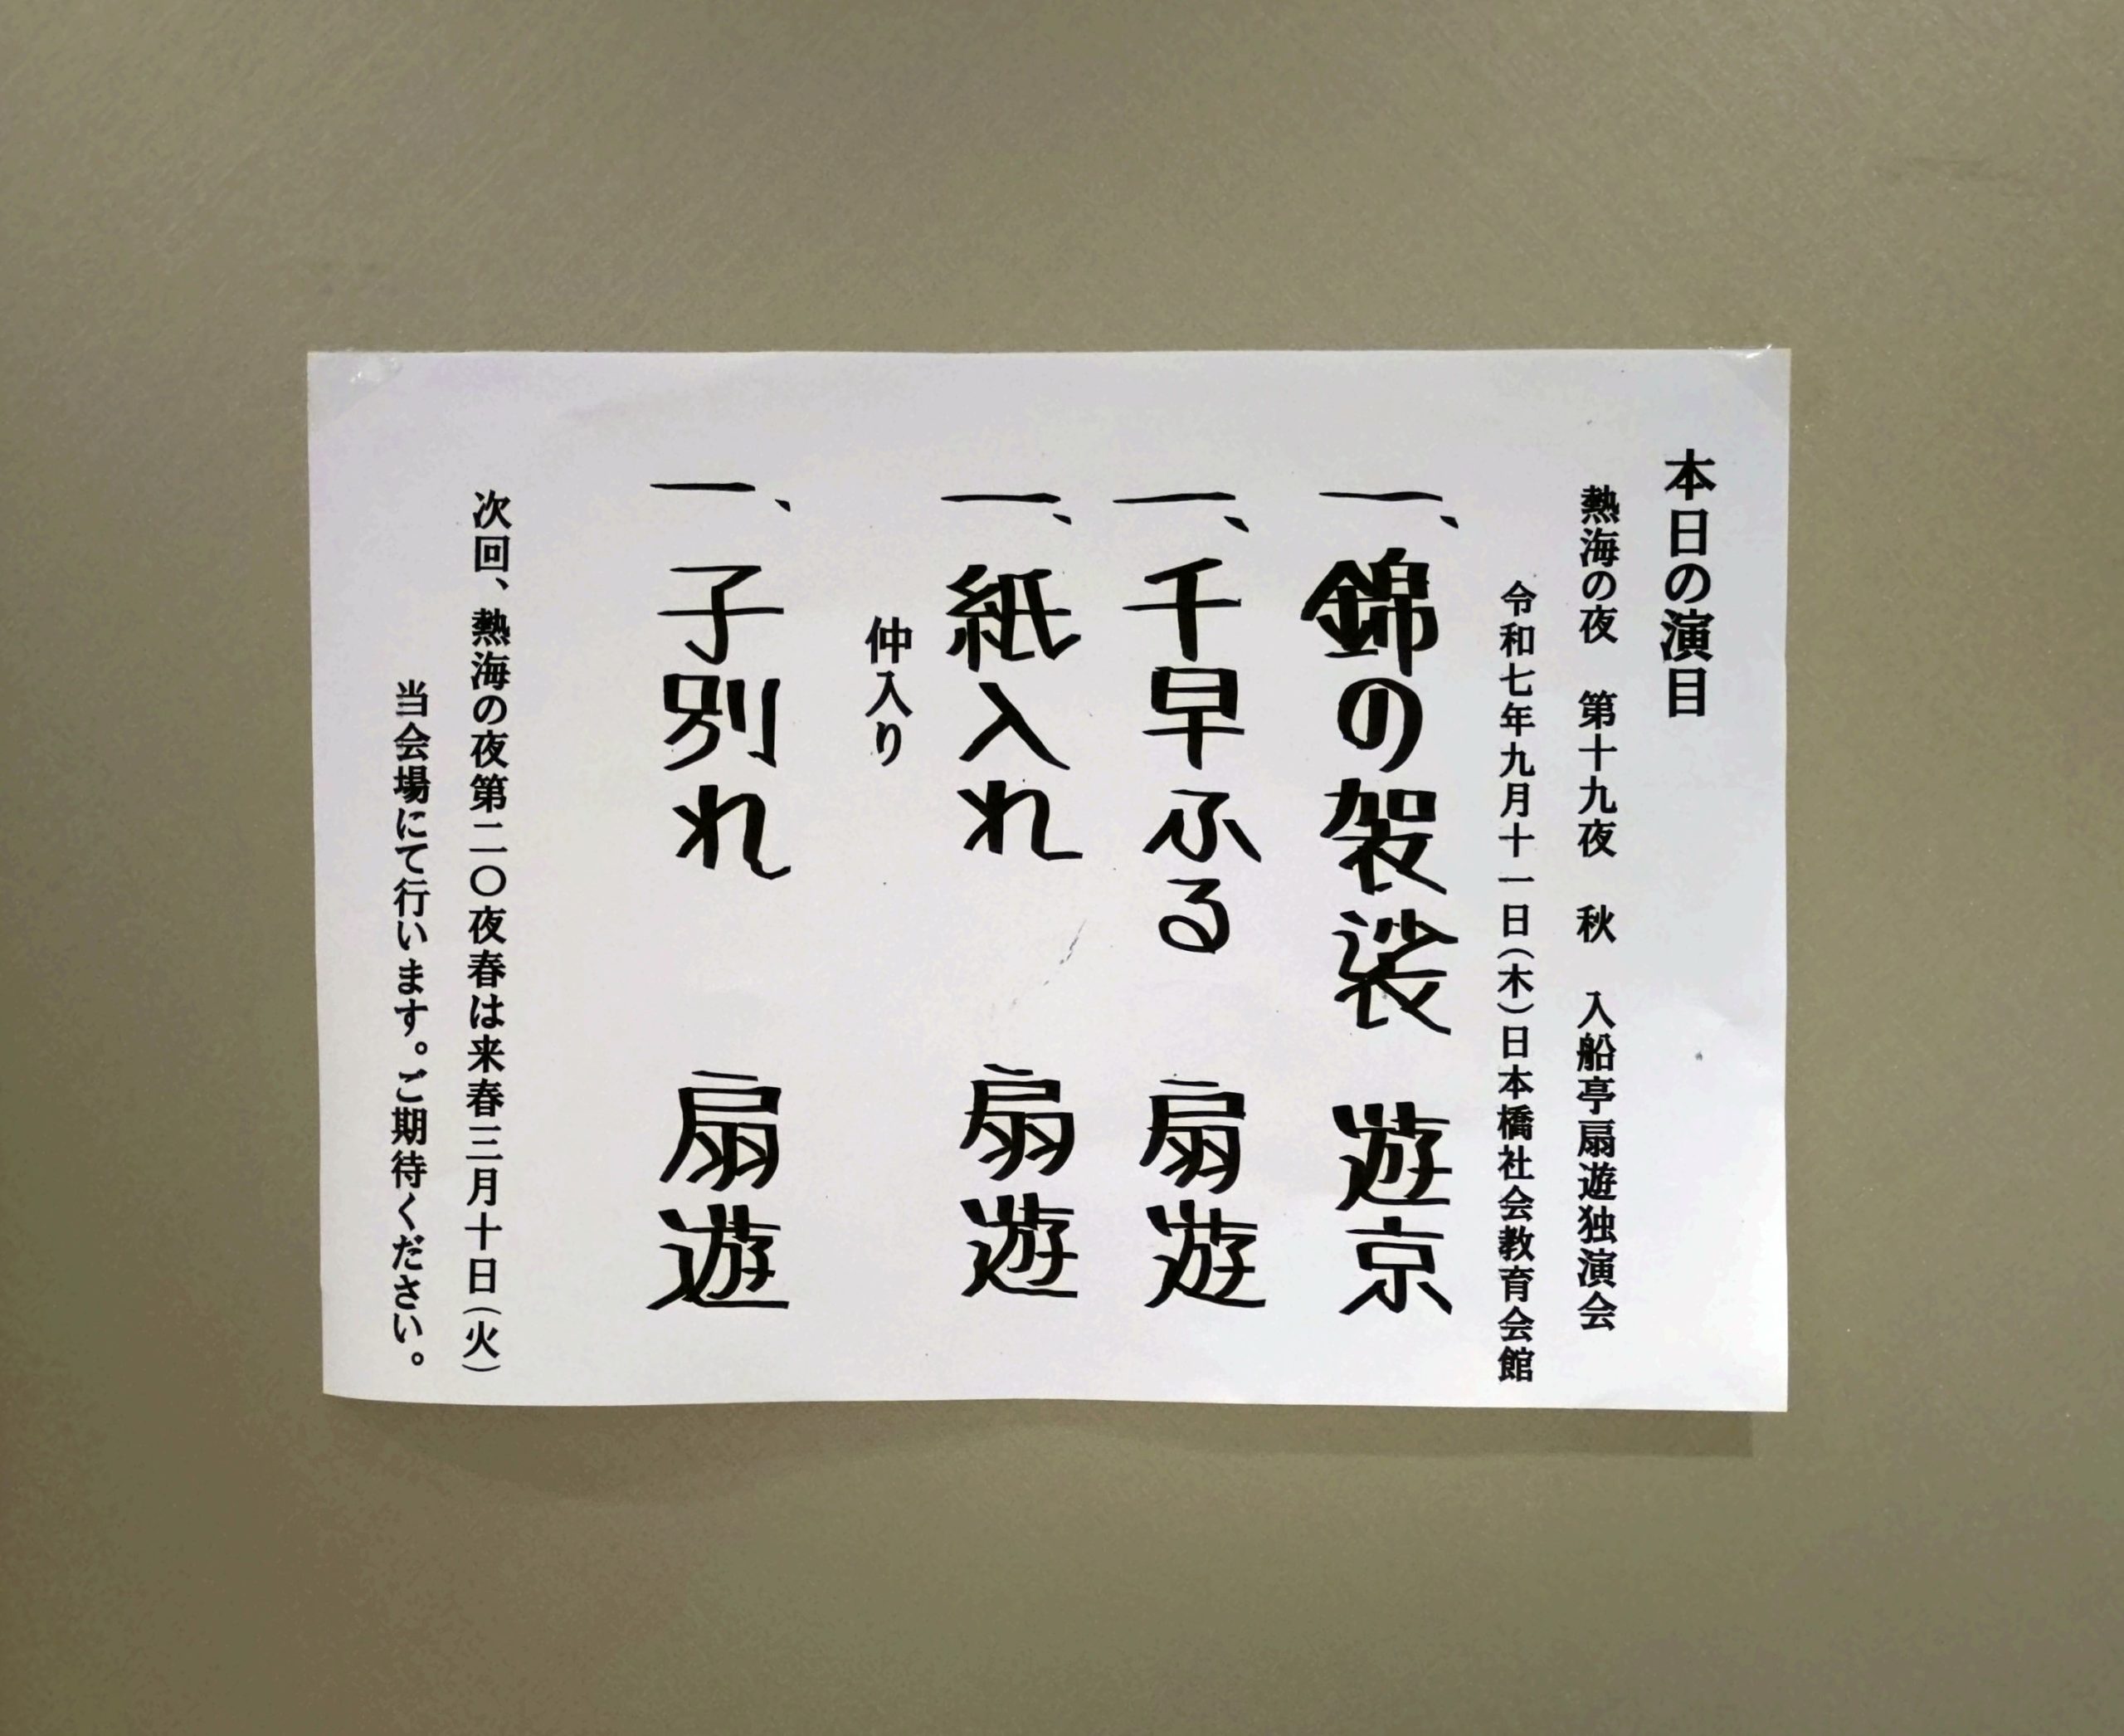 本日の演目
熱海の夜　第十九夜　秋　入船亭扇遊独演会
令和七年九月十一日（木）日本橋社会教育会館
一、錦の袈裟　遊京
一、千早ふる　扇遊
一、紙入れ　扇遊
仲入り
一、子別れ　扇遊
次回、熱海の夜第二〇夜春は来春三月十日（火）
当会場にて行います。ご期待ください。